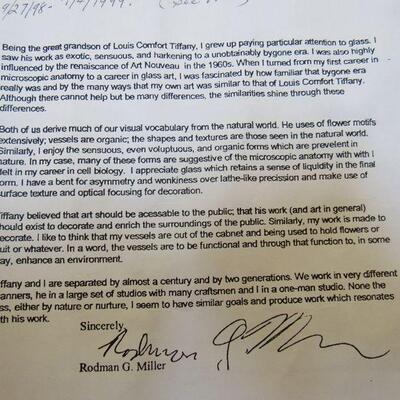 9/27/98-
Being the great grandson of Louis Comfort Tiffany, I grew up paying particular attention to glass. I
saw his work as exotic, sensuous, and harkening to a unobtainably bygone era. I was also highly
influenced by the renaiscance of Art Nouveau in the 1960s. When I turned from my first career in
microscopic anatomy to a career in glass art, I was fascinated by how familiar that bygone era
really was and by the many ways that my own art was similar to that of Louis Comfort Tiffany.
Although there cannot help but be many differences, the similarities shine through these
differences.
Both of us derive much of our visual vocabulary from the natural world. He uses of flower motifs
extensively; vessels are organic; the shapes and textures are those seen in the natural world.
Similarly, I enjoy the sensuous, even voluptuous, and organic forms which are prevelent in
nature. In my case, many of these forms are suggestive of the microscopic anatomy with with I
felt in my career in cell biology. I appreciate glass which retains a sense of liquidity in the final
orm. I have a bent for asymetry and wonkiness over lathe-like precission and make use of
surface texture and optical focusing for decoration.
iffany believed that art should be acessable to the public; that his work (and art in general)
hould exist to decorate and enrich the surroundings of the public. Similarly, my work is made to
ecorate. I like to think that my vessels are out of the cabnet and being used to hold flowers or
uit or whatever. In a word, the vessels are to be functional and through that function to, in some
ay, enhance an environment.
iffany and I are separated by almost a century and by two generations. We work in very different
anners, he in a large set of studios with many craftsmen and I in a one-man studio. None the
ss, either by nature or nurture, I seem to have similar goals and produce work which resonates
ith his work.
Sincerely,
Rodman G. Miller
Rodman G. Miller